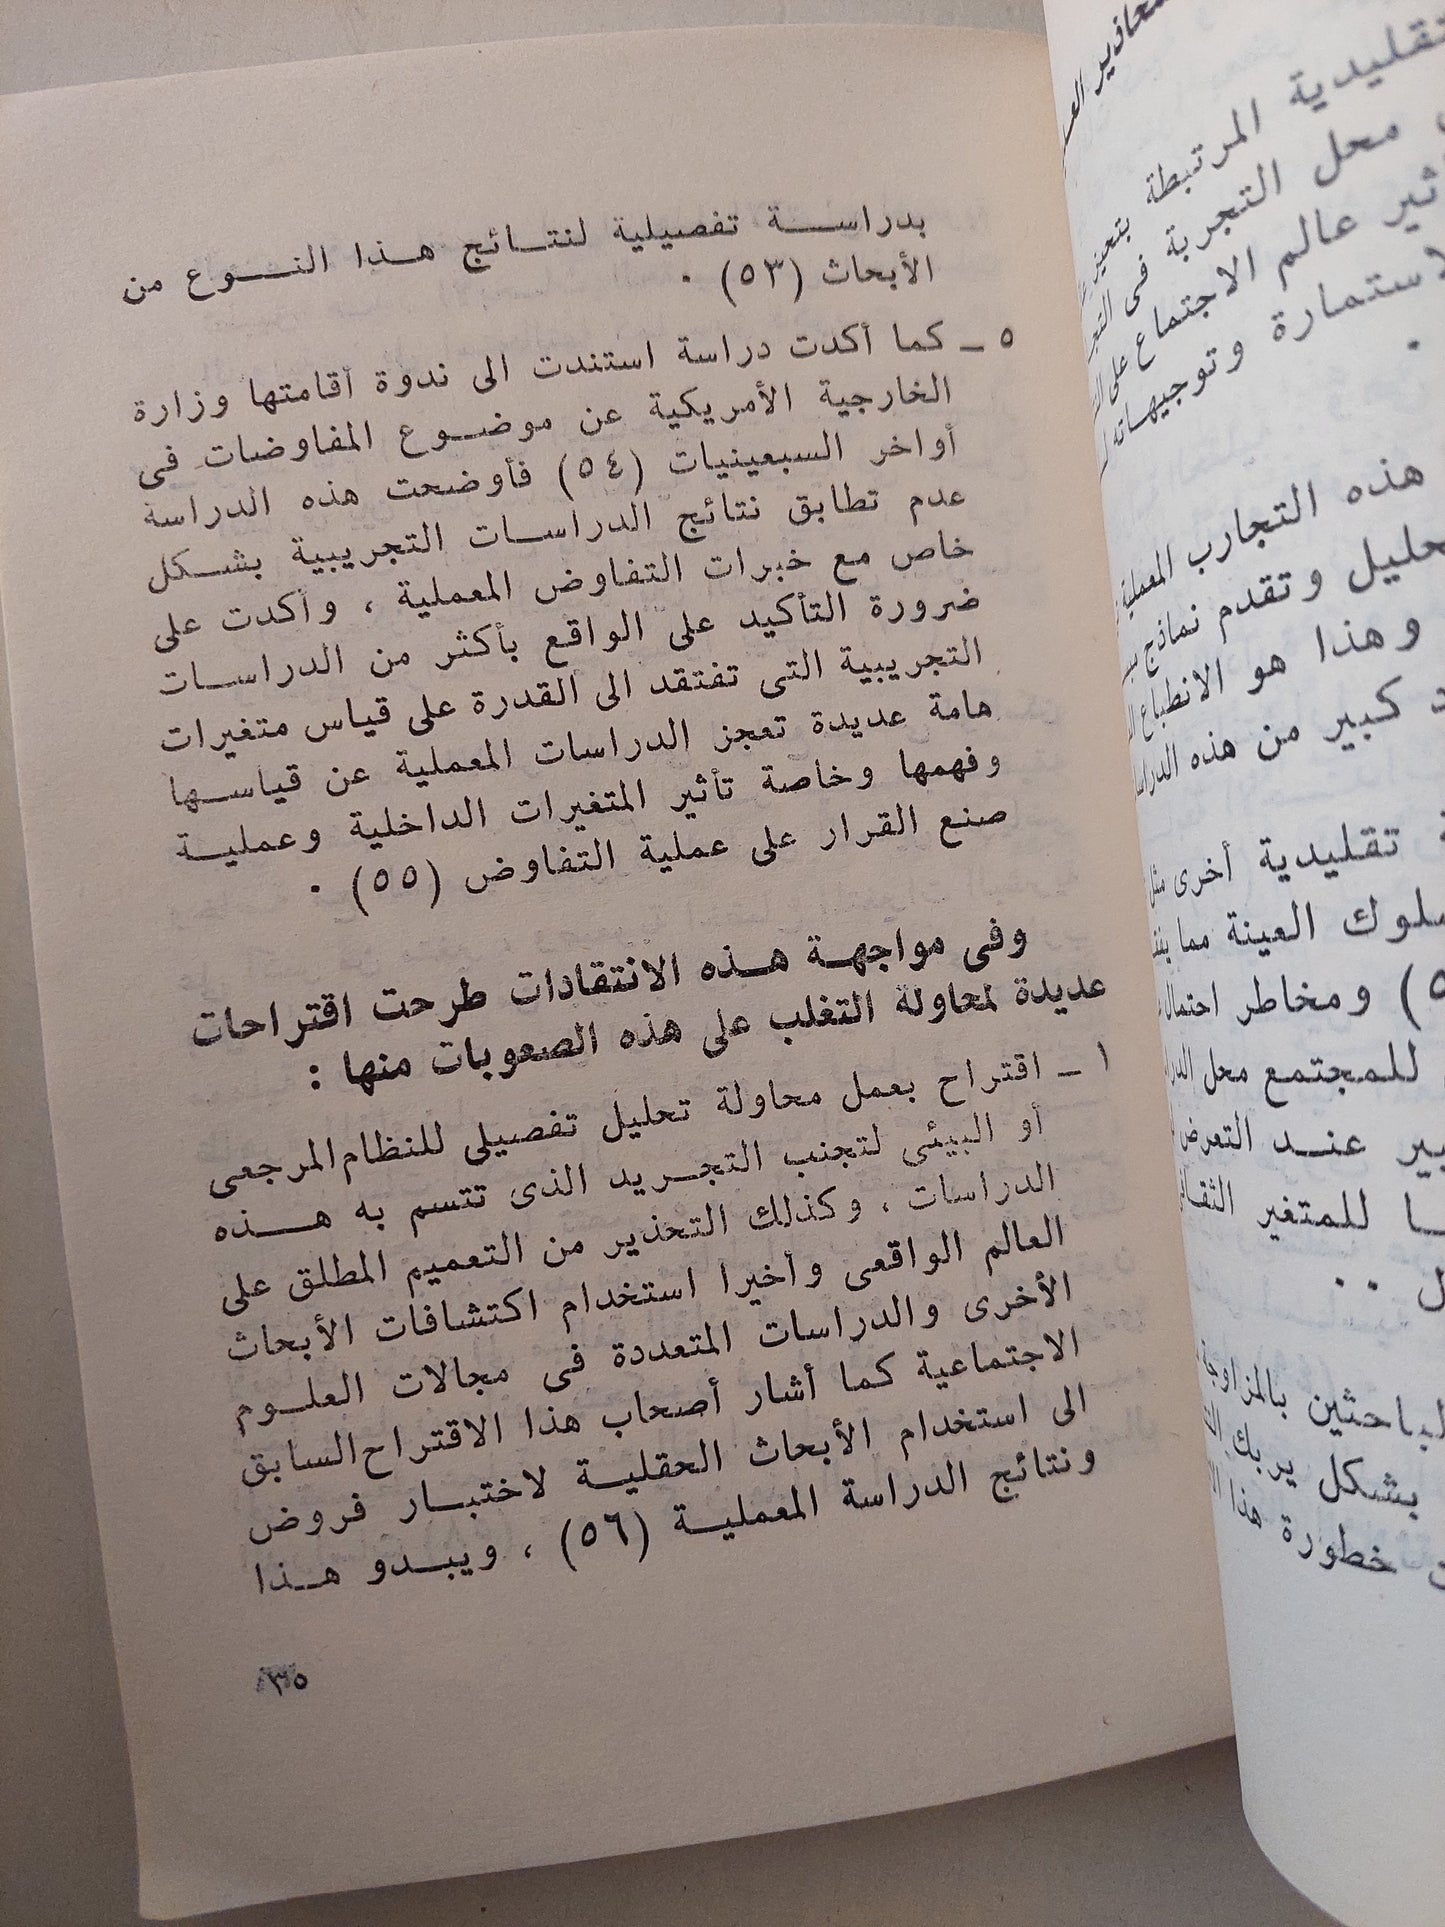 بدراسة تفصيلية لنتائج هذا النوع من
الأبحاث (٥٣) .
٥ ـ كما أكدت دراسة استندت الى ندوة أقامتها وزارة
الخارجية الأمريكية عن موضوع المفاوضات فى
أواخر السبعينيات (٥٤) فأوضحت هذه الدراسة
عدم تطابق نتائج الدراسات التجريبية بشكل
خاص مع خبرات التفاوض المعملية ، وأكدت على
ضرورة التأكيد على الواقع بأكثر من الدراسات
التجريبية التى تفتقد الى القدرة على قياس متغيرات
هامة عديدة تعجز الدراسات المعملية عن قياسها
وفهمها وخاصة تأثير المتغيرات الداخلية وعملية
صنع القرار على عملية التفاوض (٥٥) .
وفى مواجهة هذه الانتقادات طرحت اقتراحات
عديدة لمحاولة التغلب على هذه الصعوبات منها :
١ ـ اقتراح بعمل محاولة تحليل تفصيلى للنظام المرجعى
أو البيئى لتجنب التجريد الذى تتسم به هذه
الدراسات ، وكذلك التحذير من التعميم المطلق على
العالم الواقعى وأخيرا استخدام اكتشافات الأبحاث
الأخرى والدراسات المتعددة فى مجالات العلوم
الاجتماعية كما أشار أصحاب هذا الاقتراح السابق
الى استخدام الأبحاث الحقلية لاختبار فروض
ونتائج الدراسة المعملية (٥٦) ، ويبدو هذا
٣٥
تقليدية المرتبطة
محل التجربة فى
عالم الاجتماع على
وتوجيهاته
هذه التجارب المعملية
وتقدم نماذج
وهذا هو الانطباع
كبير من هذه
تقليدية أخرى مثل
العينة مما
ومخاطر احتمال
للمجتمع محل
عند التعرض
للمتغير
بشكل يربك
خطورة هذا